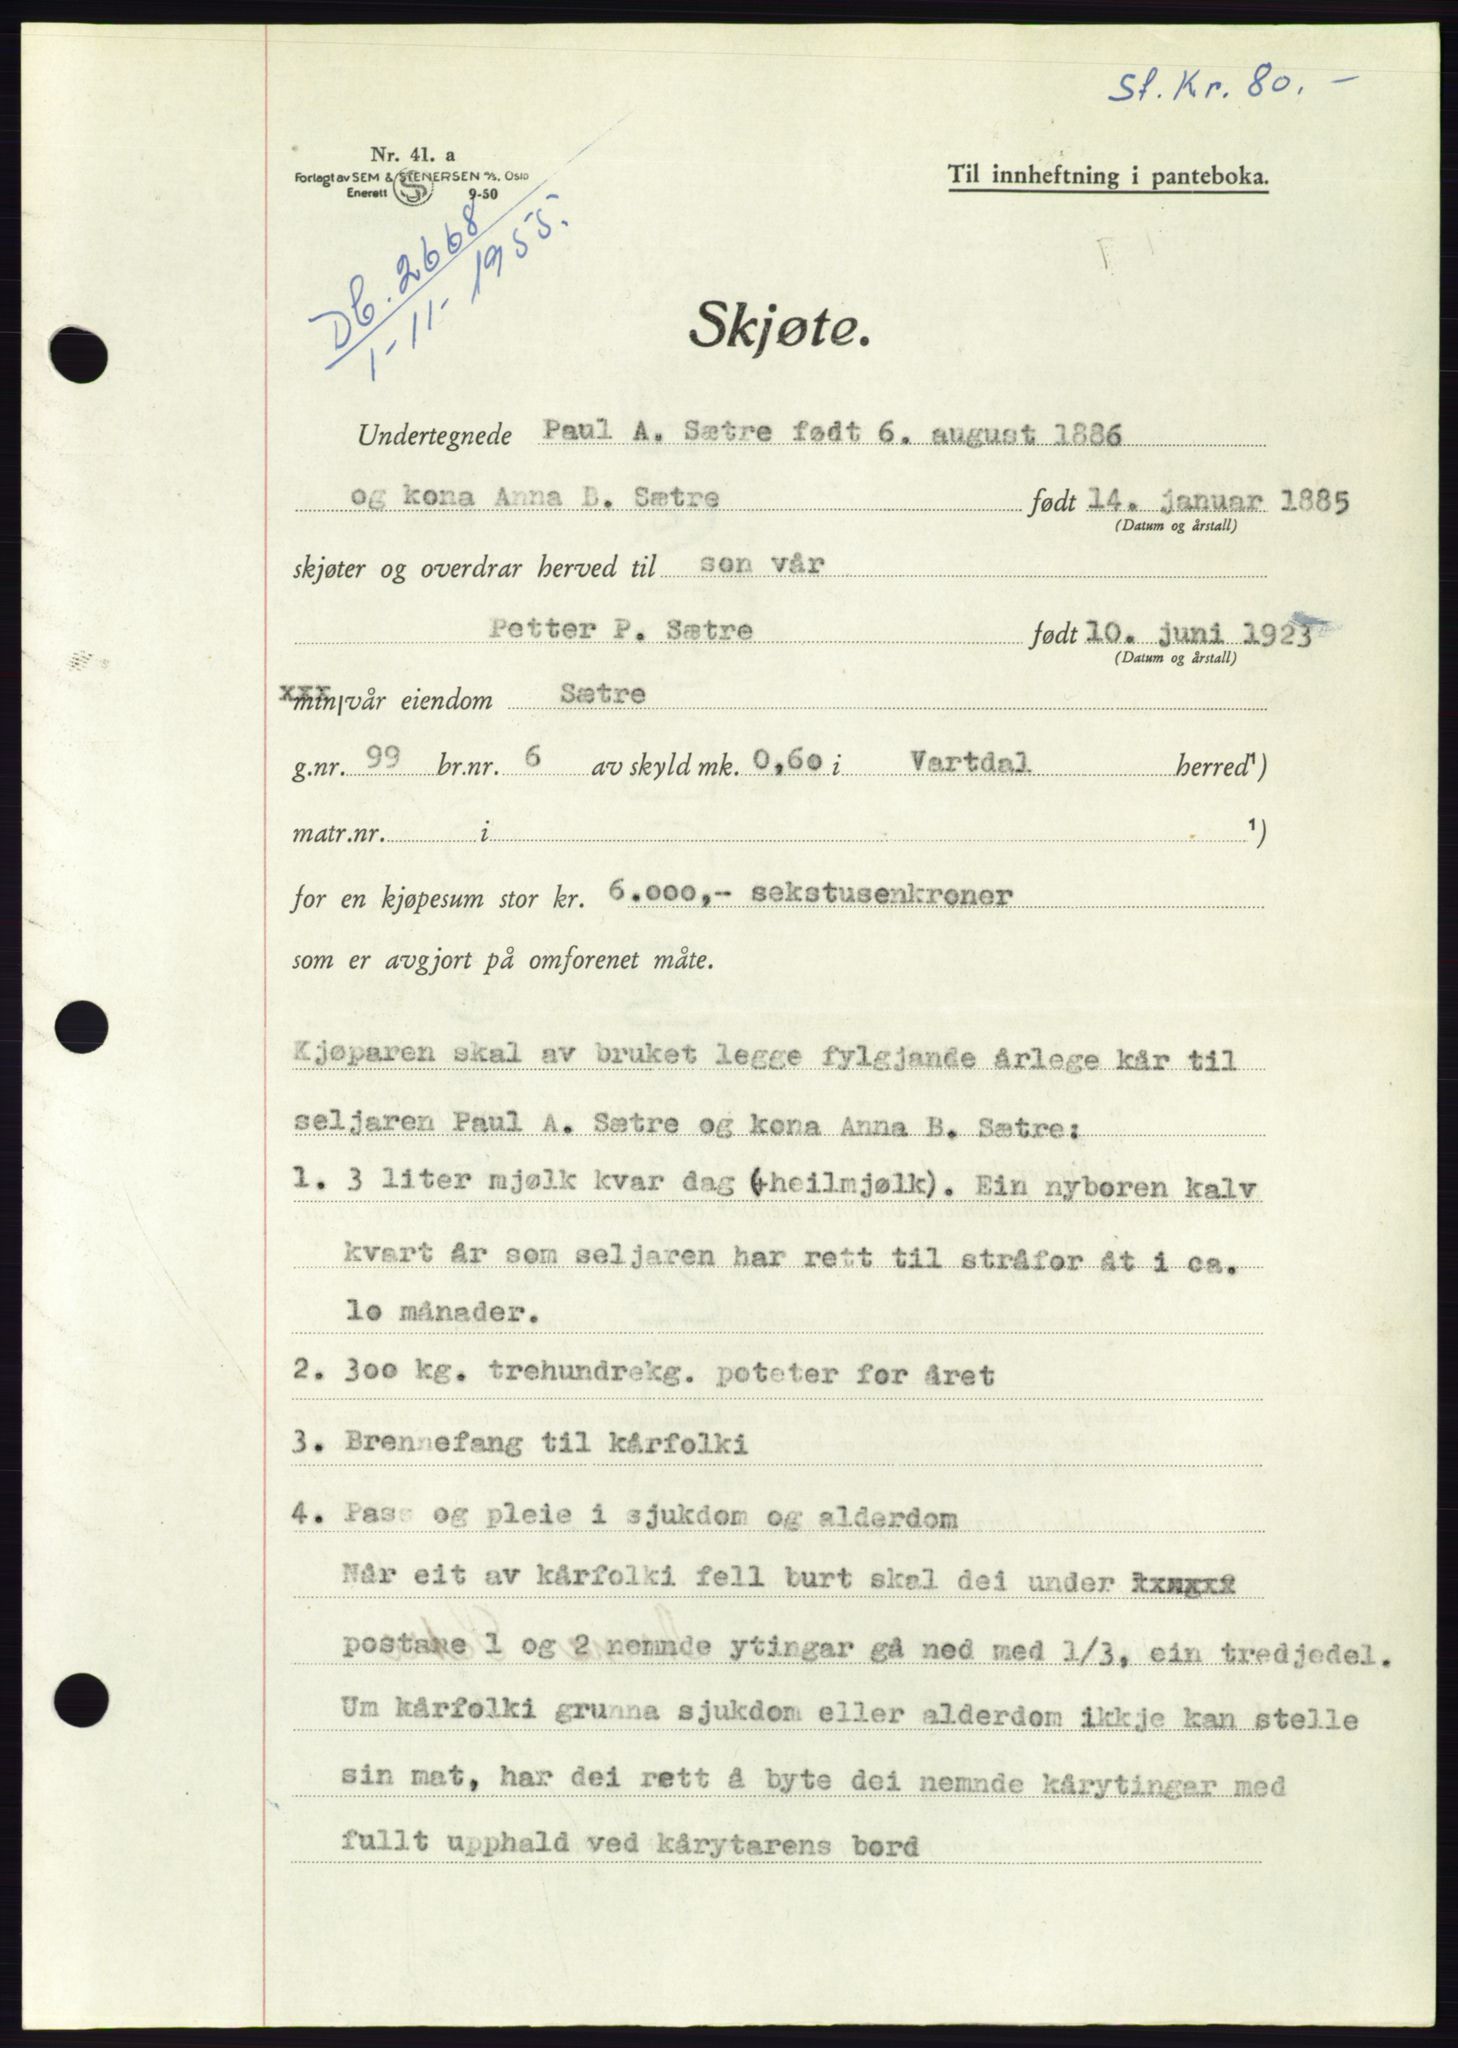 St. Kr. 80.-
Nr. 41. a
Forlagt av SEM & STENERSEN A/S, Oslo
Enerett 9-50
Til innheftning i panteboka.
Db. 2668
1-11-1955.
Skjøte.
Undertegnede Paul A. Sætre født 6. august 1886
og kona Anna B. Sætre født 14. januar 1885
(Datum og årstall)
skjøter og overdrar herved til son vår
Petter P. Sætre født 10. juni 1923
(Datum og årstall)
min/vår eiendom Sætre
g.nr. 99 br.nr. 6 av skyld mk. 0,60 i Vartdal herred¹)
matr.nr. i ¹)
for en kjøpesum stor kr. 6.000,- sekstusenkroner
som er avgjort på omforenet måte.
Kjøparen skal av bruket legge fylgjande årlege kår til
seljaren Paul A. Sætre og kona Anna B. Sætre:
1. 3 liter mjølk kvar dag (heilmjølk). Ein nyboren kalv
kvart år som seljaren har rett til stråfor åt i ca.
10 månader.
2. 300 kg. trehundrekg. poteter for året
3. Brennefang til kårfolki
4. Pass og pleie i sjukdom og alderdom
Når eit av kårfolki fell burt skal dei under
postane 1 og 2 nemnde ytingar gå ned med 1/3, ein tredjedel.
Um kårfolki grunna sjukdom eller alderdom ikkje kan stelle
sin mat, har dei rett å byte dei nemnde kårytingar med
fullt upphald ved kårytarens bord